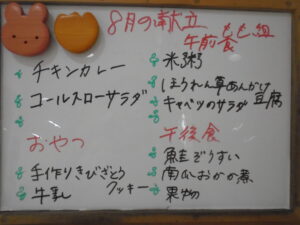 8月の献立
午前食 もも組
チキンカレー
コールスローサラダ
米粥
ほうれん草あんかけ豆腐
キャベツのサラダ
おやつ
手作りきびざとうクッキー
牛乳
午後食
鮭ぞうすい
南瓜おかか煮
果物